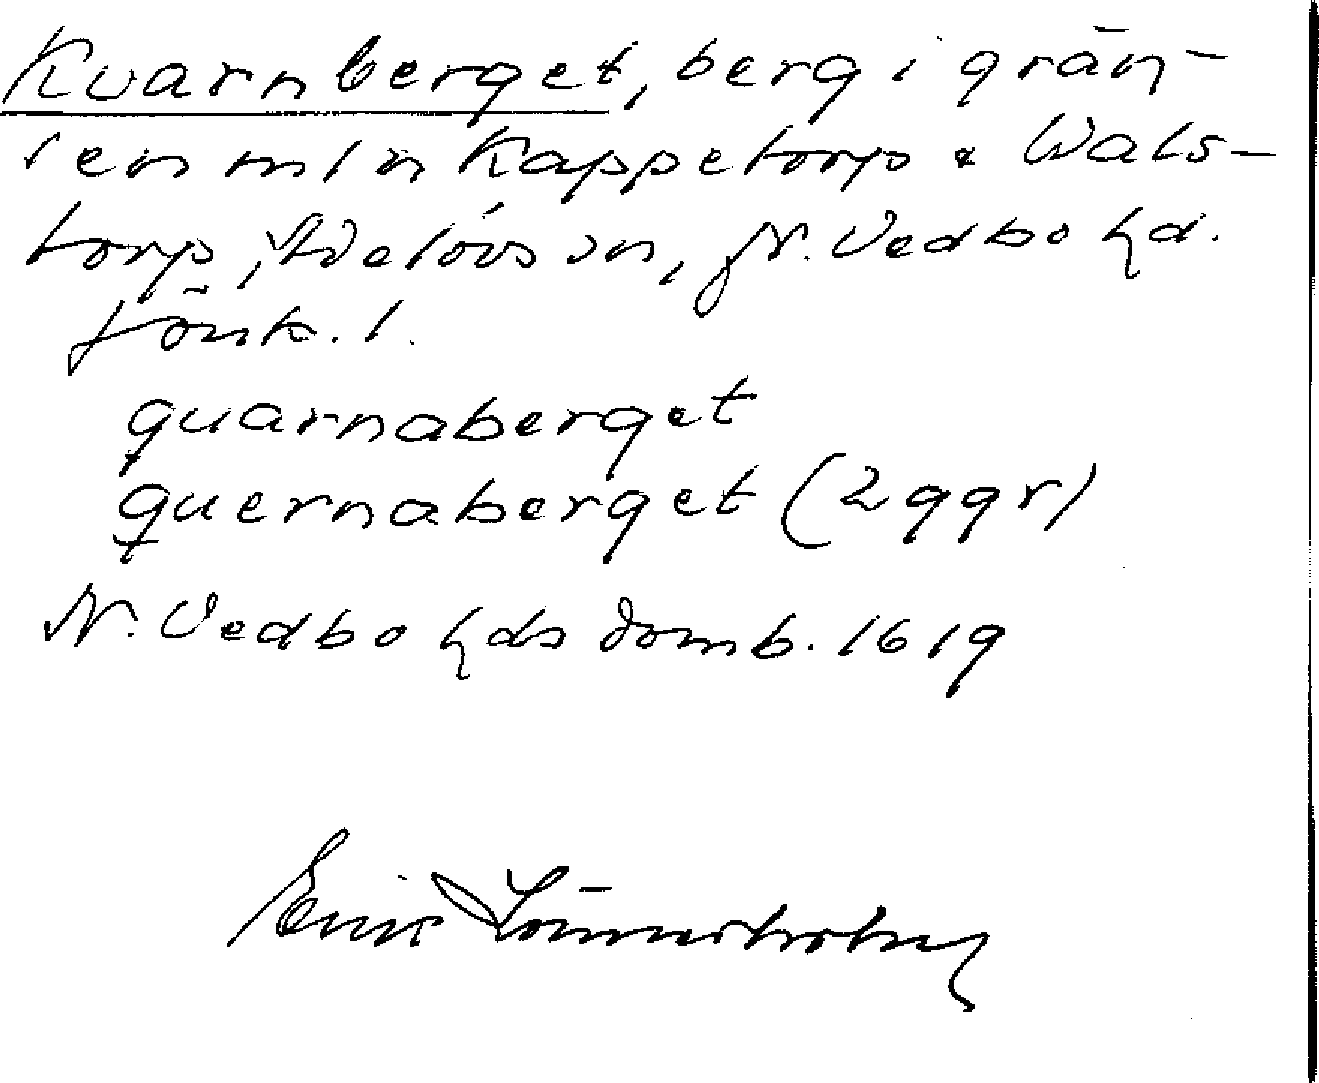 Kvarnberget, berg i grän-
sen mln Kappetorp & Wals-
torp, Adelövs sn, N. Vedbo hd.
Jönk. l.
quarnaberget
quernaberget (2 ggr)
N. Vedbo hds domb. 1619
Erik Lönnerholm